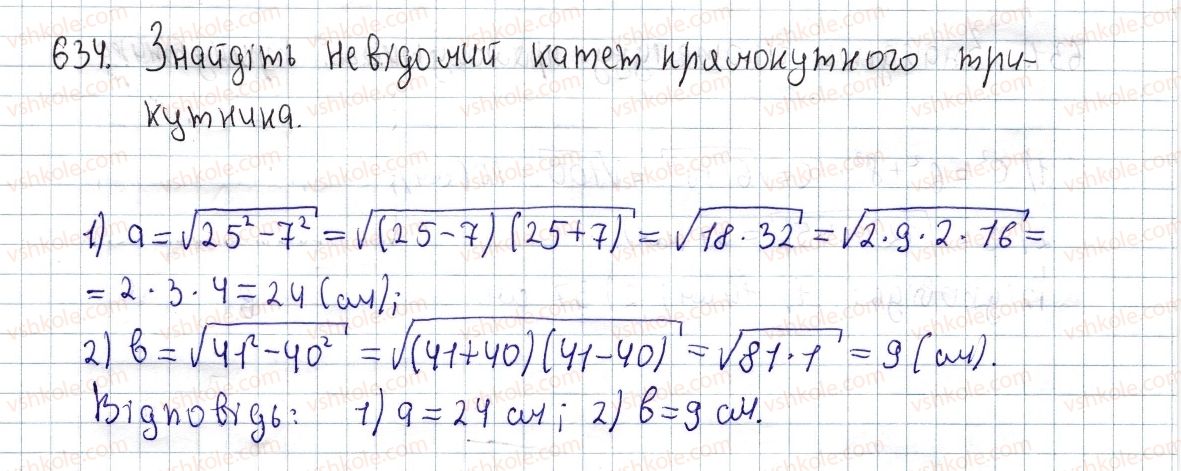 634. Знайдіть невідомий катет прямокутного три-
кутника.
1) a = √(25² - 7²) = √((25-7)(25+7)) = √(18·32) = √(2·9·2·16) =
= 2·3·4 = 24 (см);
2) b = √(41² - 40²) = √((41+40)(41-40)) = √(81·1) = 9 (см).
Відповідь: 1) a = 24 см; 2) b = 9 см.